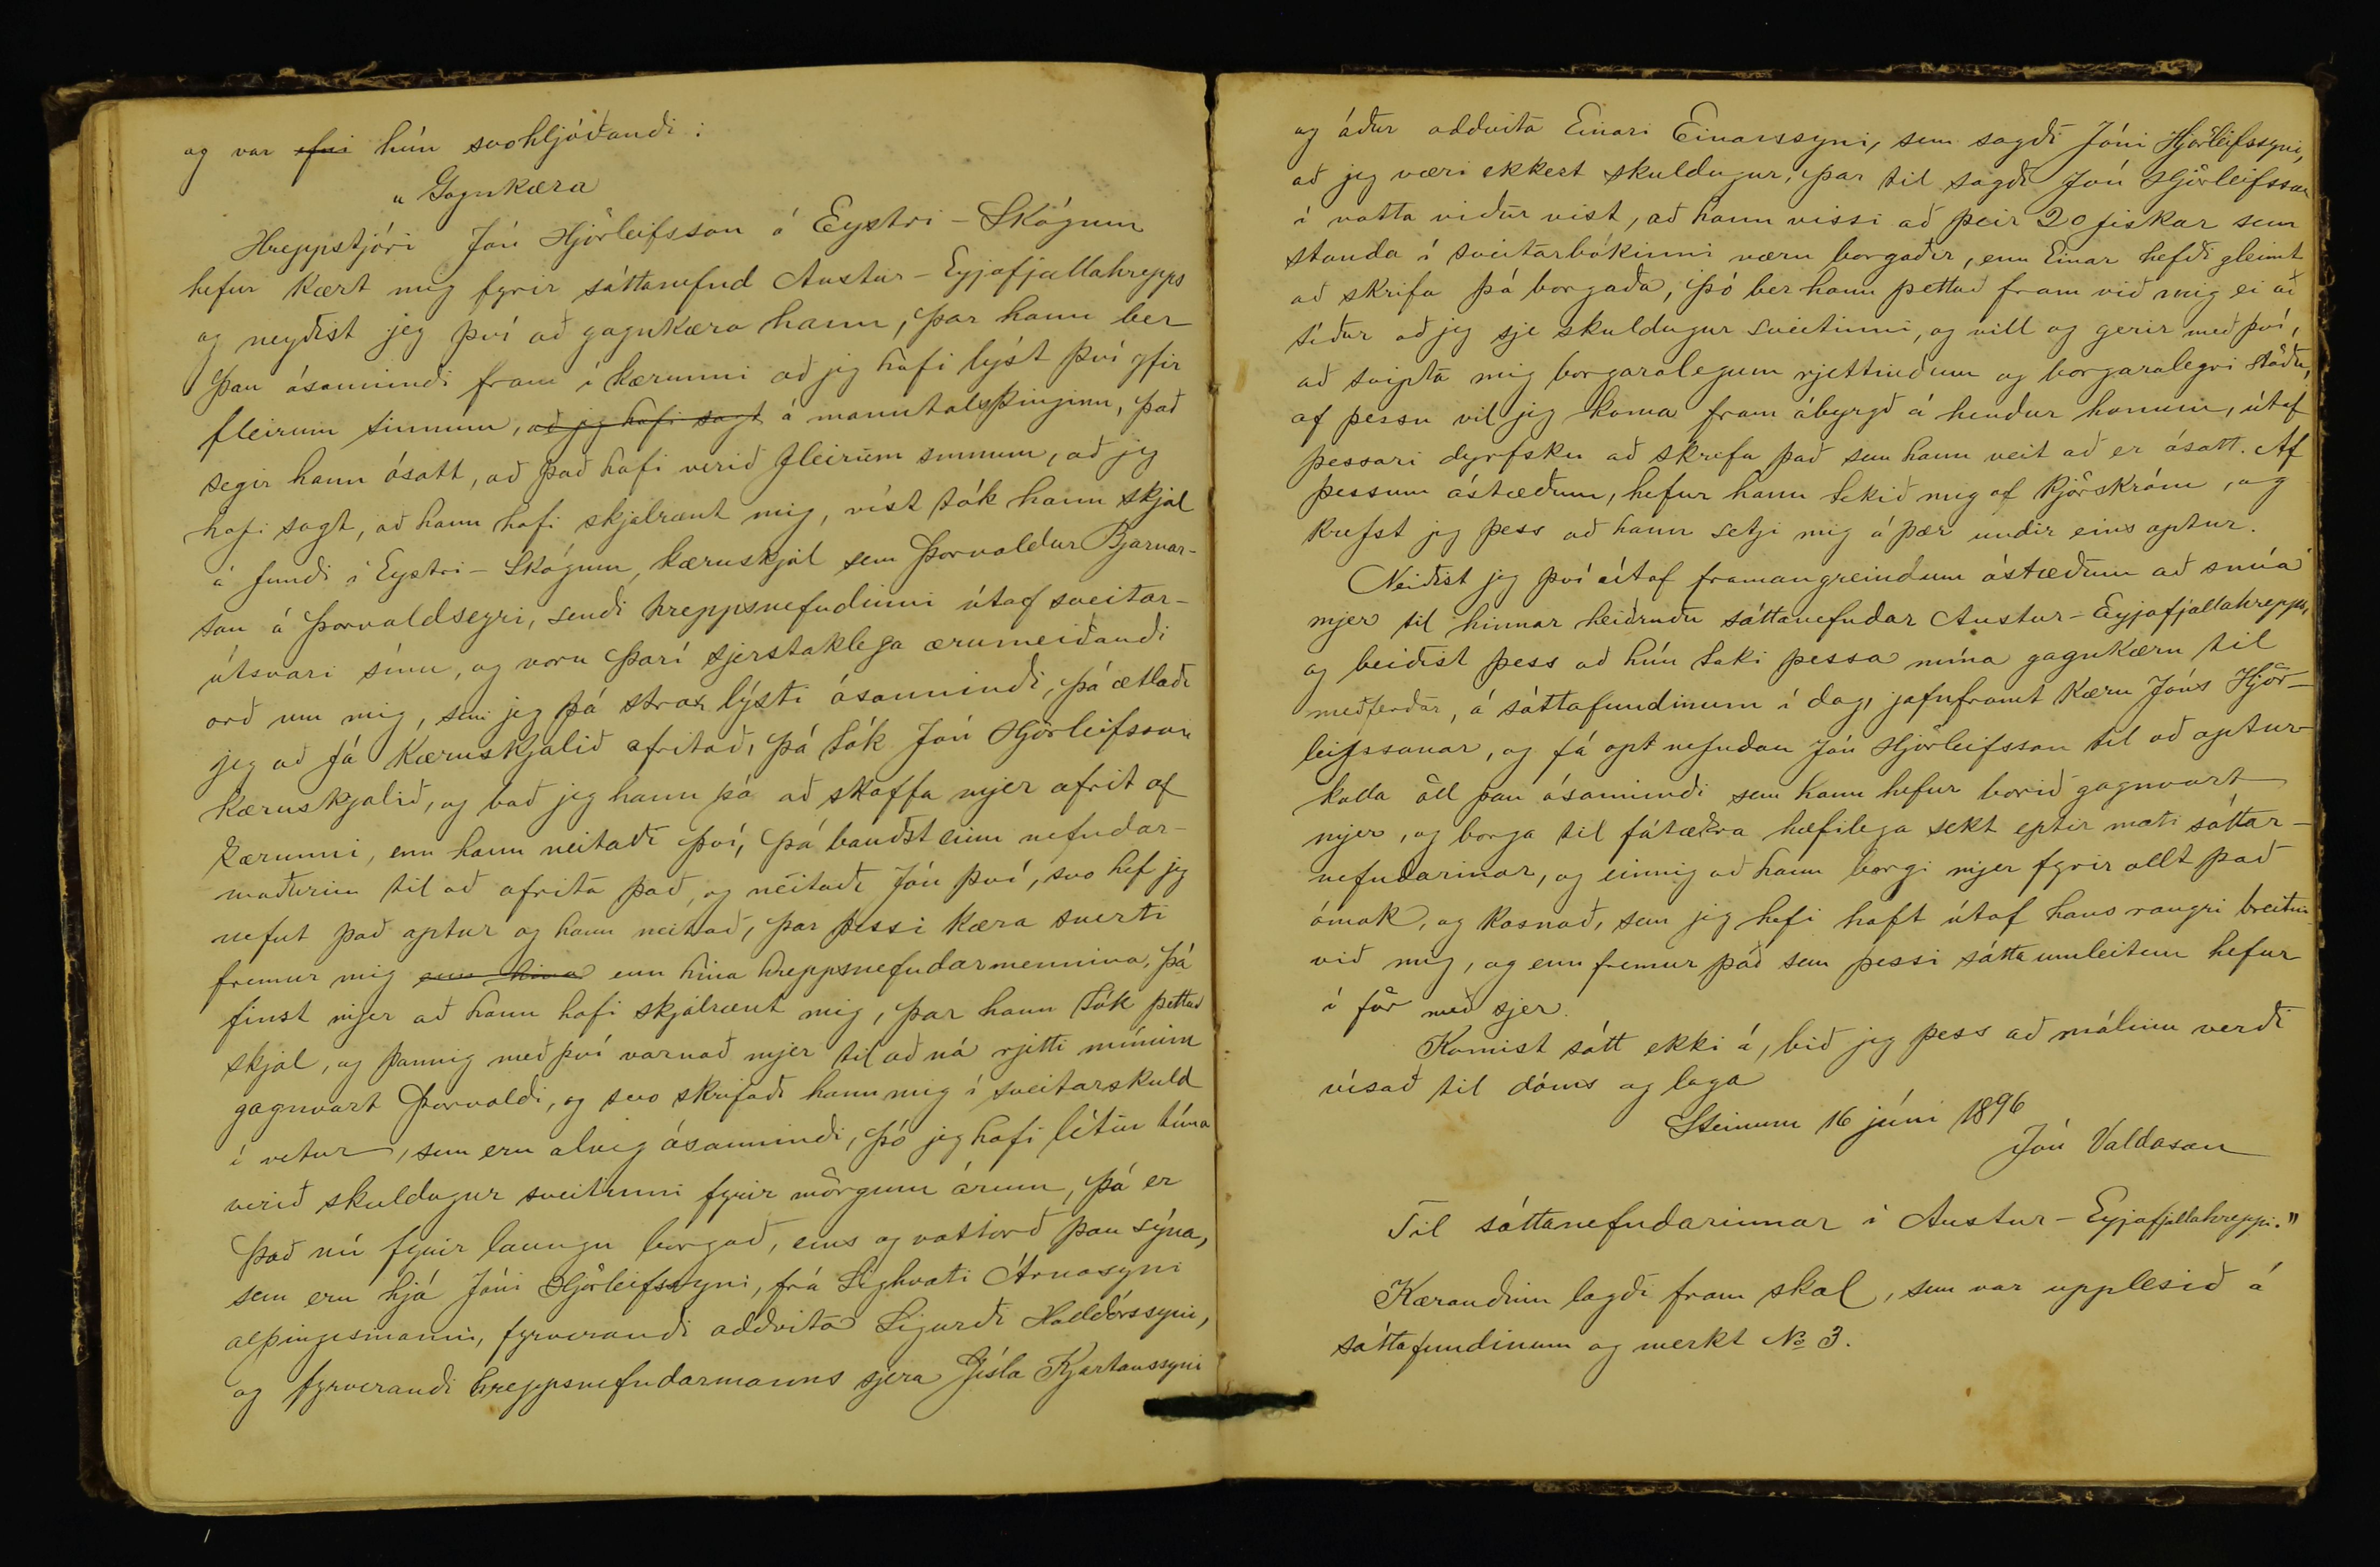 og var efni hún svohljóðandi:
„Gagnkæra
Hreppstjóri Jón Hjörleifsson á Eystri-Skógum
hefur kært mig fyrir sáttanefnd Austur-Eyjafjallahrepps
og neyðist jeg því að gagnkæra hann, þar hann ber
þau ósannindi fram í kærunni að jeg hafi lýst því yfir
fleirum sinnum, að jeg hafi sagt á manntalsþinginu, það
segir hann ósatt, að það hafi verið fleirum sinnum, að jeg
hafi sagt, að hann hafi skjalrænt mig, víst tók hann skjal
á fundi í Eystri-Skógum, kæruskjal sem Þorvaldur Bjarnar-
son á Þorvaldseyri, sendi hreppsnefndinni útaf sveitar-
útsvari sínu, og voru þarí sjerstaklega ærumeiðandi
orð um mig, sem jeg þá strax lýsti ósannindi, þá ætlaði
jeg að fá kæruskjalið afritað, þá tók Jón Hjörleifsson
kæruskjalið, og bað jeg hann þá að skaffa mjer afrit af
kærunni, enn hann neitaði því, þá bauðst einn nefndar-
maðurinn til að afrita það, og neitaði Jón því, svo hef jeg
nefnt það aptur og hann neitað, þar þessi kæra snerti
fremur mig enn hina enn hina hreppsnefndarmennina, þá
finst mjer að hann hafi skjalrænt mig, þar hann tók þettað
skjal, og þannig með því varnað mjer til að ná rjetti mínum
gagnvart Þorvaldi, og svo skrifaði hann mig í sveitarskuld
í vetur, sem eru alveg ósannindi, þó jeg hafi lítin tíma
verið skuldugur sveitinni fyrir mörgum árum, þá er
það nú fyrir laungu borgað, eins og vottorð þau sýna,
sem eru hjá Jóni Hjörleifssyni, frá Sighvati Árnasyni
alþingismanni, fyrverandi oddvita Sigurði Halldórssyni,
og fyrverandi hreppsnefndarmanns sjera Gísla Kjartanssyni
og áður oddvita Einari Einarssyni, sem sagði Jóni Hjörleifssyni,
að jeg væri ekkert skuldugur, þar til sagði Jón Hjörleifsson
í votta viður vist, að hann vissi að þeir 20 fiskar sem
standa í sveitarbókinni væru borgaðir, enn Einar hefði gleimt
að skrifa þá borgaða, þó ber hann þettað fram við mig ei að
síður að jeg sje skuldugur sveitinni, og vill og gerir með því,
að svipta mig borgaralegum rjettindum og borgaralegri stöðu,
af þessu vil jeg koma fram ábyrgð á hendur honum, útaf
þessari dyrfsku að skrifa það sem hann veit að er ósatt. Af
þessum ástæðum, hefur hann tekið mig af kjörskránni, og
krefst jeg þess að hann setji mig á þær undir eins aptur.
Neiðist jeg því útaf framangreindum ástæðum að snúa
mjer til hinnar heiðruðu sáttanefndar Austur-Eyjafjallahrepps,
og beiðist þess að hún taki þessa mína gagnkæru til
meðferðar, á sáttafundinum í dag, jafnframt kæru Jóns Hjör-
leifssonar, og fá opt nefndan Jón Hjörleifsson til að aptur-
kalla öll þau ósannindi sem hann hefur borið gagnvart
mjer, og borga til fátækra hæfilega sekt eptir mati sáttar-
nefndarinar, og einnig að hann borgi mjer fyrir allt það
ómak, og kosnað, sem jeg hefi haft útaf hans rangri breitni
við mig, og enn fremur það sem þessi sátta umleitun hefur
í för með sjer.
Komist sátt ekki á, bið jeg þess að málinu verði
vísað til dóms og laga
Steinum 16 júní 1896
Jón Valdason
Til sáttanefndarinnar í Austur-Eyjafjallahreppi."
Kærandinn lagði fram skal, sem var upplesið á
sáttafundinum og merkt № 3.